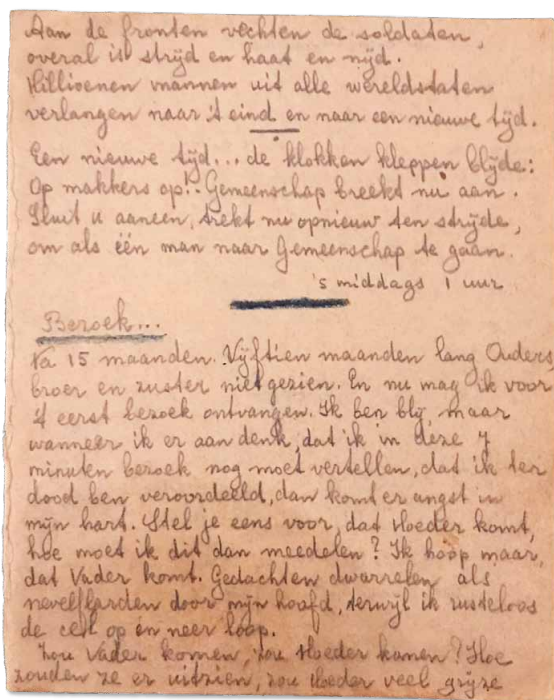 Aan de fronten vechten de soldaten,
overal is strijd en haat en nijd.
Millioenen mannen uit alle wereldstaten
verlangen naar 't eind en naar een nieuwe tijd.
Een nieuwe tijd... de klokken kleppen blijde:
Op makkers op! Gemeenschap breekt nu aan.
Sluit u aaneen, trekt nu opnieuw ten strijde,
om als één man naar Gemeenschap te gaan.
's middags 1 uur
Bezoek...
Na 15 maanden. Vijftien maanden lang Ouders,
broer en zuster niet gezien. En nu mag ik voor
't eerst bezoek ontvangen. Ik ben blij maar
wanneer ik er aan denk, dat ik in deze 7
minuten bezoek nog moet vertellen, dat ik ter
dood ben veroordeeld, dan komt er angst in
mijn hart. Stel je eens voor, dat Moeder komt,
hoe moet ik dit dan meedelen? Ik hoop maar,
dat Vader komt. Gedachten dwarrelen als
nevelflarden door mijn hoofd, terwijl ik rusteloos
de cel op en neer loop.
Zou Vader komen, zou Moeder komen? Hoe
zouden ze er uitzien, zou Moeder veel grijze